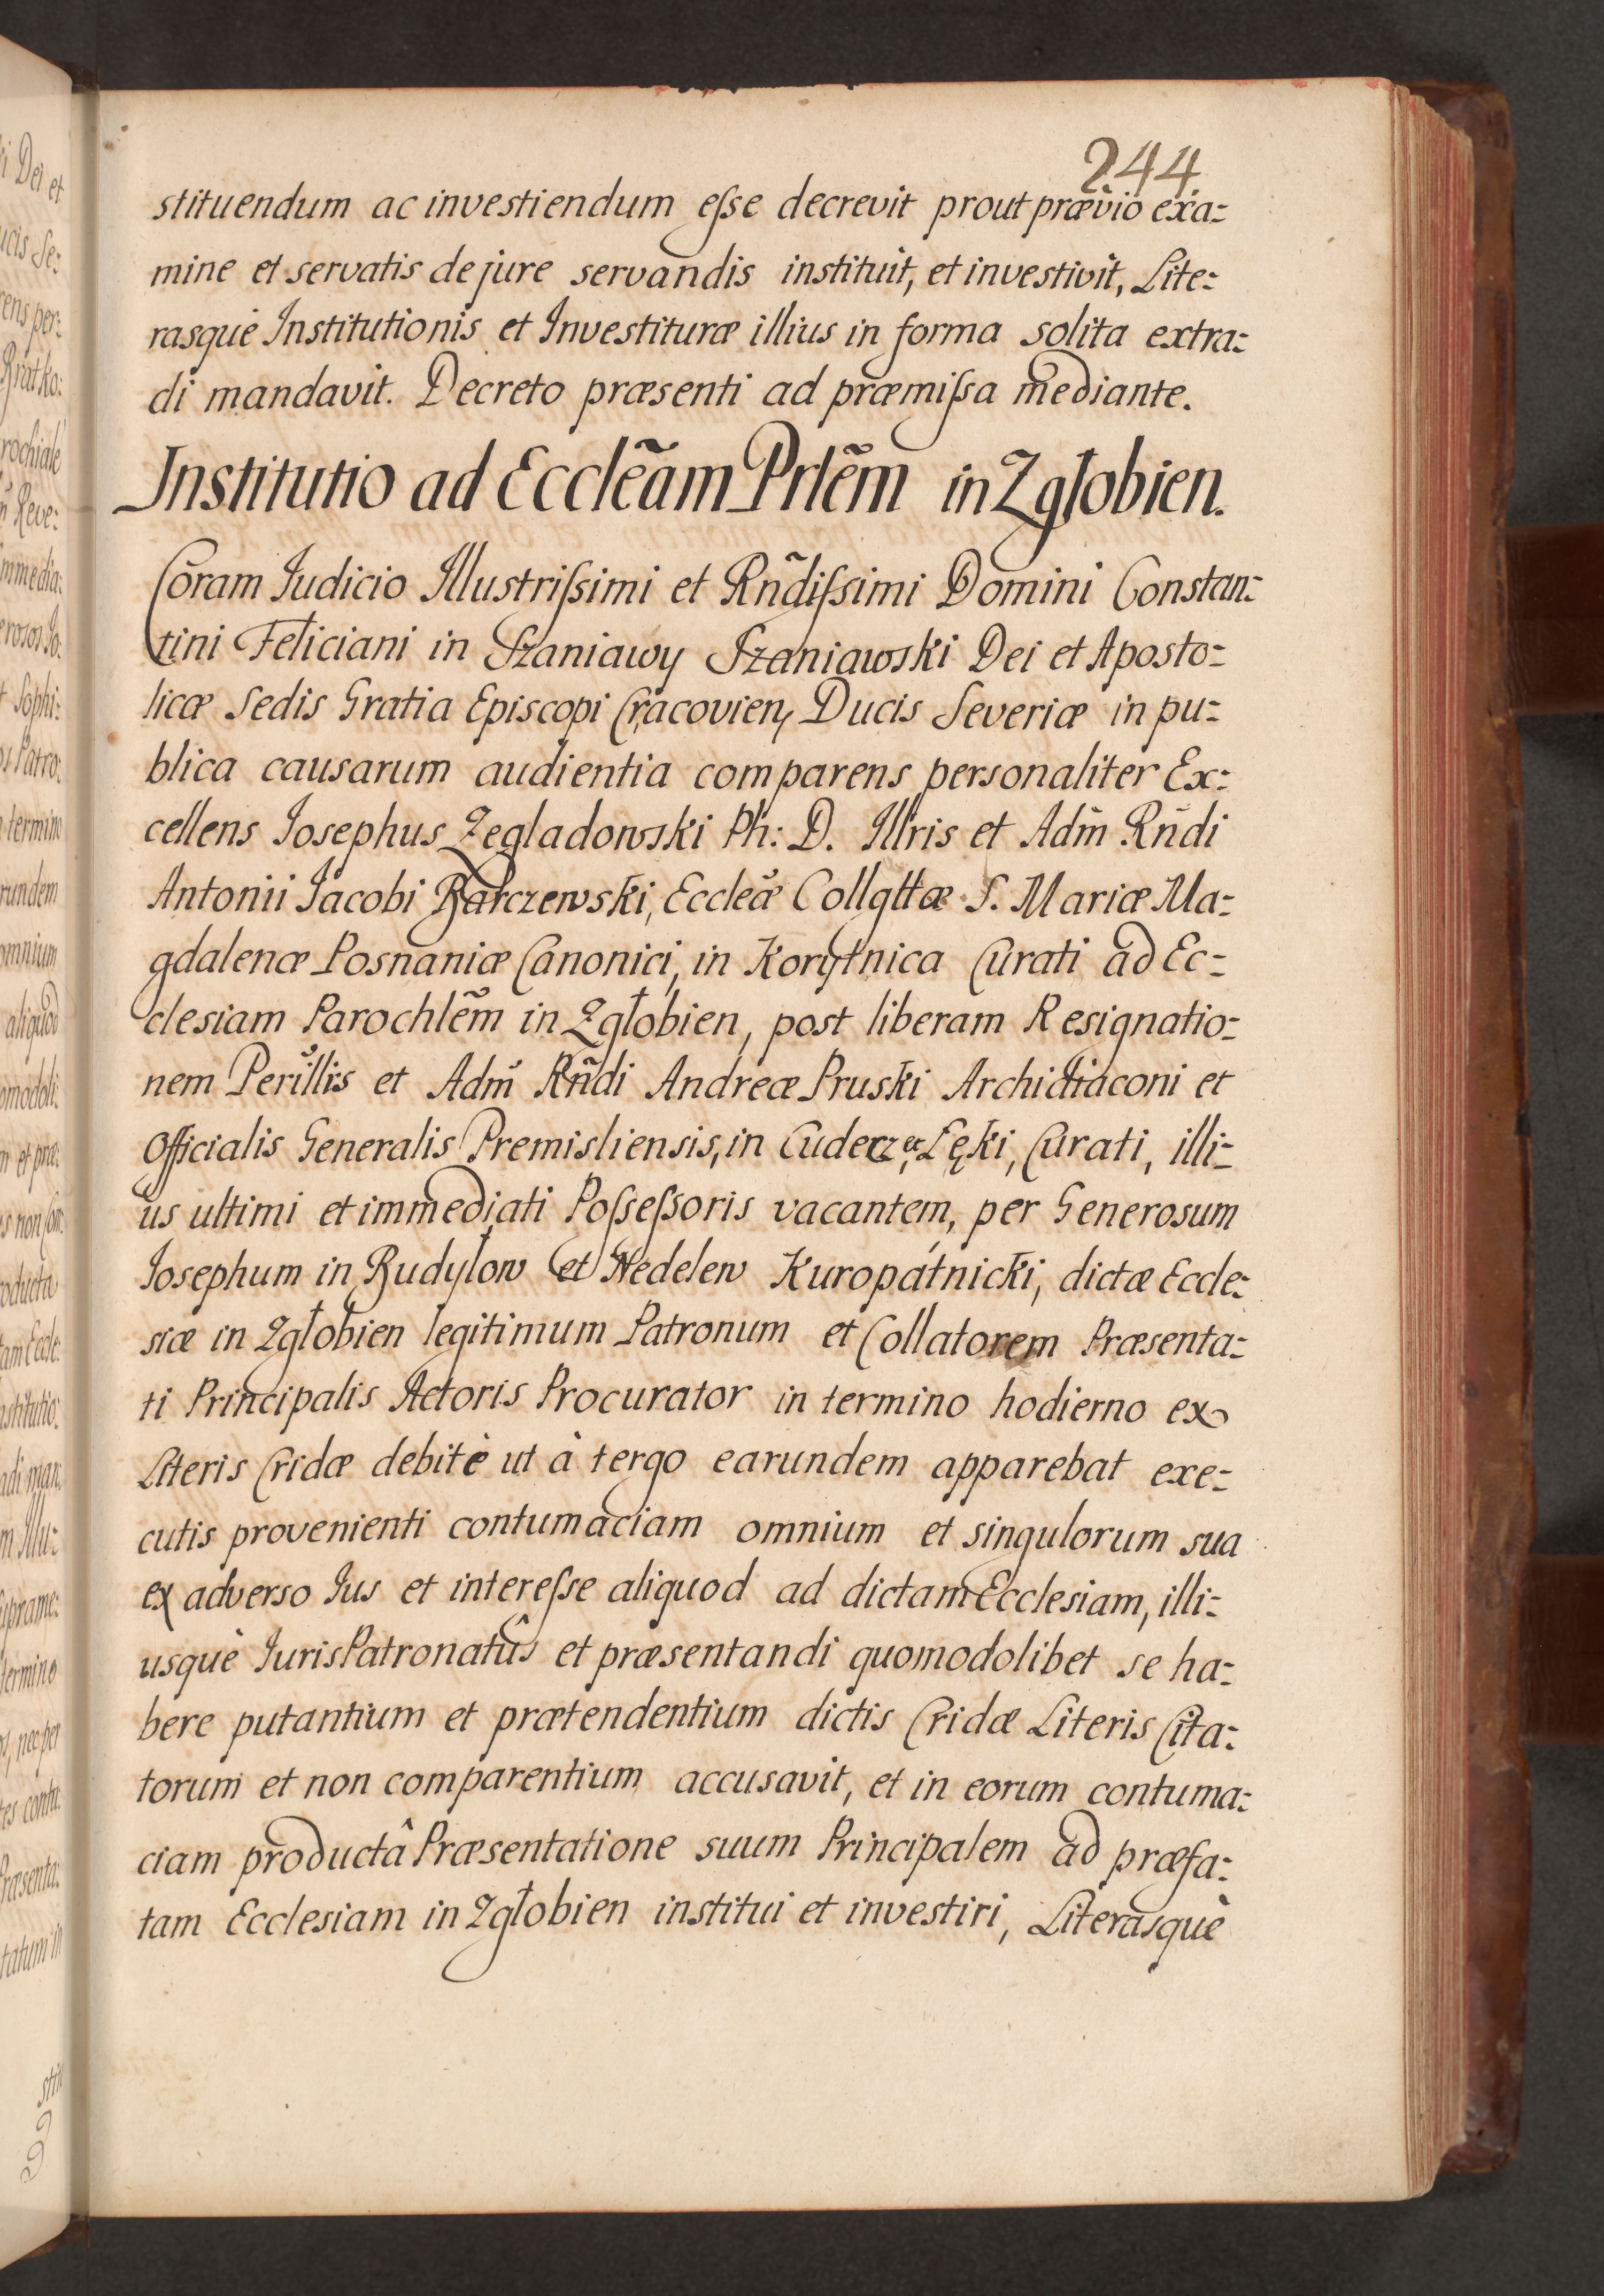 244
stituendum ac investiendum eſse decrevit prout prævio exa=
mine et servatis de jure servandis instituit, et investivit, Lite=
rasque Institutionis et Investituræ illius in forma solita extra=
di mandavit. Decreto præsenti ad præmiſsa mediante.
Institutio ad Ecclẽam Prlẽm in Zgłobien.
Coram Iudicio Illustriſsimi et Rñdiſsimi Domini Constan=
tini Feliciani in Szaniawy Szaniawski Dei et Aposto=
licæ Sedis Gratia Episcopi Cracovien, Ducis Severiæ in pu=
blica causarum audientia comparens personaliter Ex=
cellens Iosephus Zegladowski Ph: D. Illris et Adm̃ Rñdi
Antonii Iacobi Barczewski, Eccleæ̃ Collgttæ S. Mariæ Ma=
gdalenæ Posnaniæ Canonici, in Korytnica Curati ad Ec=
clesiam Parochlẽm in Zgłobien, post liberam Resignatio=
nem Perillis et Adm̃ Rñdi Andreæ Pruski Archidiaconi et
Officialis Generalis Premisliensis, in Cudercz et Łęki, Curati, illi=
us ultimi et immediati Poſseſsoris vacantem, per Generosum
Iosephum in Budyłow et Nedelew Kuropatnicki, dictæ Eccle=
siæ in Zgłobien legitimum Patronum et Collatorem Præsenta=
ti Principalis Actoris Procurator in termino hodierno ex
Literis Cridæ debitè ut à tergo earundem apparebat exe=
cutis provenienti contumaciam omnium et singulorum sua
ex adverso Ius et intereſse aliquod ad dictam Ecclesiam, illi=
usquè IurisPatronatûs et præsentandi quomodolibet se ha=
bere putantium et prætendentium dictis Cridæ Literis Cita=
torum et non comparentium accusavit, et in eorum contuma=
ciam productâ Præsentatione suum Principalem ad præfa=
tam Ecclesiam in Zgłobien institui et investiri, Literasquè